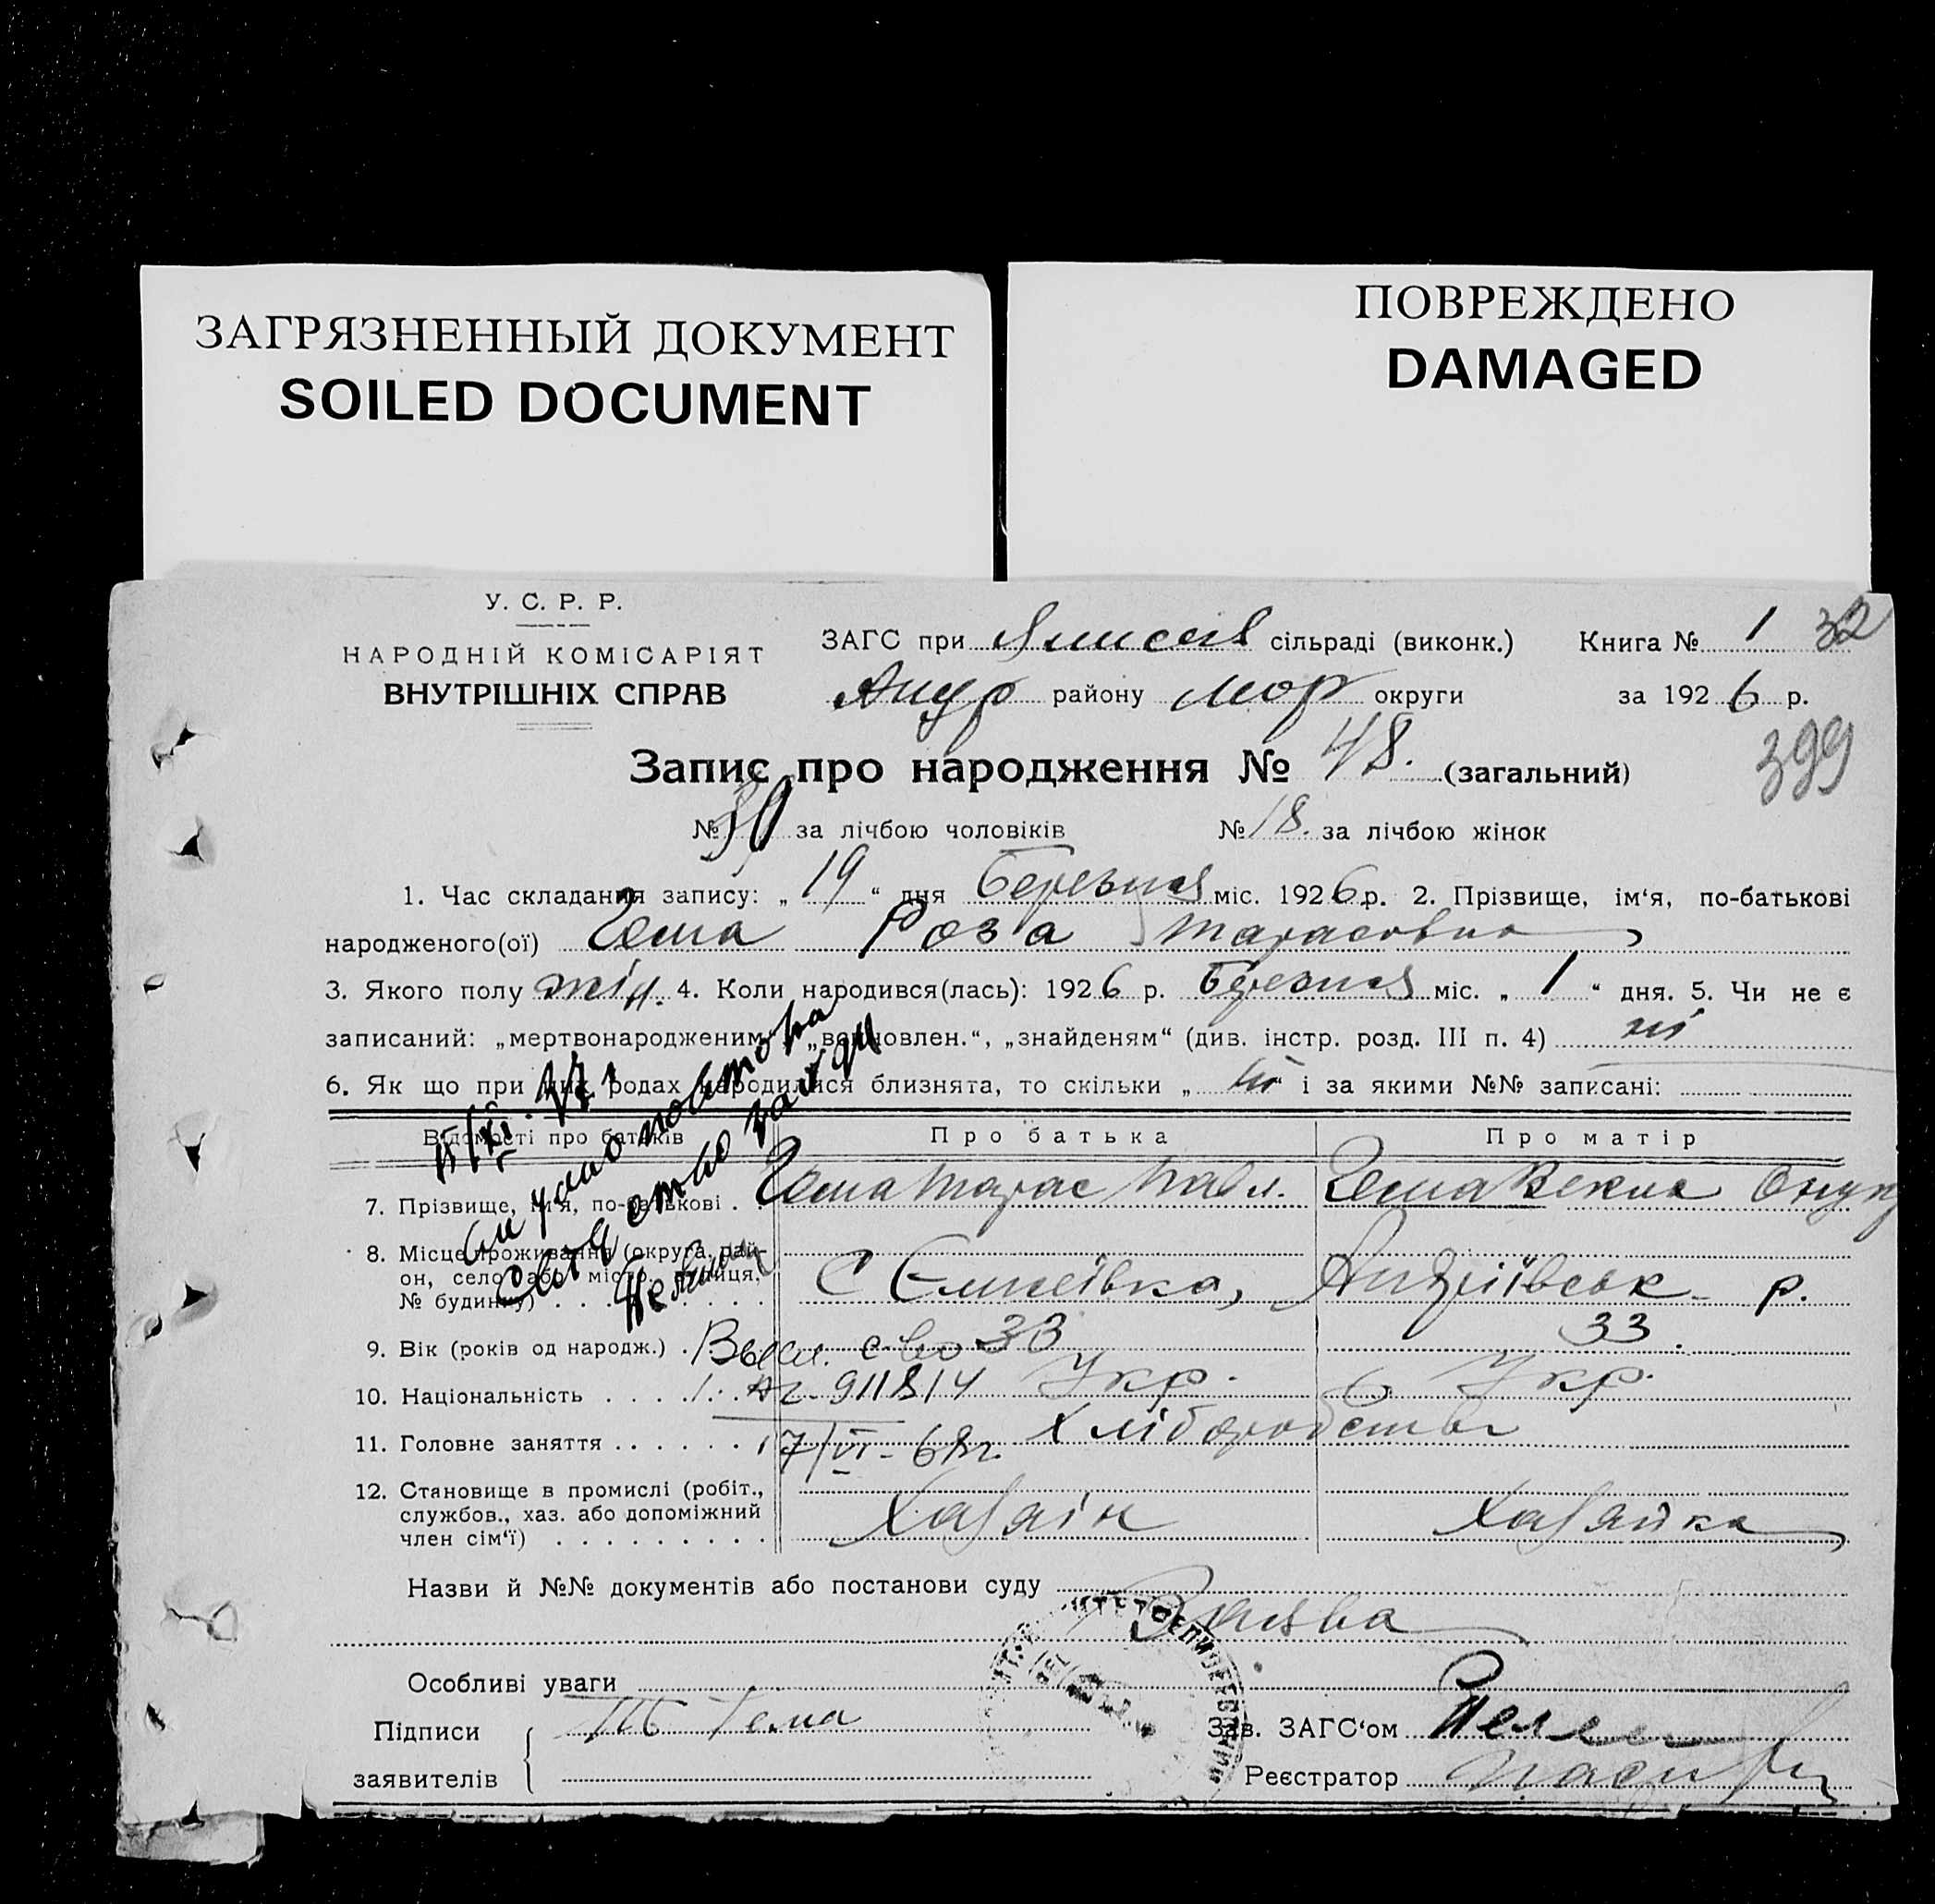 ЗАГРЯЗНЕННЫЙ ДОКУМЕНТ
SOILED DOCUMENT
ПОВРЕЖДЕНО
DAMAGED
У. С. Р. Р.
НАРОДНІЙ КОМІСАРІЯТ
ВНУТРІШНІХ СПРАВ
ЗАГС при сільраді (виконк.) Книга № 1 32
району округи за 1926 р.
399
Запис про народження № 48. (загальний)
№ 30 за лічбою чоловіків № 18. за лічбою жінок
1. Час складання запису: „ 19 “ дня Березня міс. 1926 р. 2. Прізвище, ім‘я, по-батькові
народженого(ої) Гема Роза Тарасовна
3. Якого полу жін. 4. Коли народився(лась): 1926 р. Березня міс. „ 1 “ дня. 5. Чи не є
записаний: „мертвонародженим“, „всиновлен.“, „знайденям“ (див. інстр. розд. III п. 4) ні
6. Як що при цих родах народилися близнята, то скільки „ ні “ і за якими №№ записані:
Відомості про батьків
Про батька
Про матір
7. Прізвище, ім‘я, по-батькові . Гема Тарас Павл. Гема Векла
8. Місце проживання (округа, рай-
он, село або місто, вулиця,
№ будинку) С Єлисеївка, Андріївськ р.
9. Вік (років од народж.) . 33 33.
10. Національність . . . . Укр. Укр.
11. Головне заняття . . . . . . Хліборобство
12. Становище в промислі (робіт.,
службов., хаз. або допоміжний
член сім‘ї) . . . . . . . . . Хазяін Хазяйка
Назви й №№ документів або постанови суду
Заява
Особливі уваги
Підписи Т Гема Зав. ЗАГС‘ом
заявителів Реєстратор